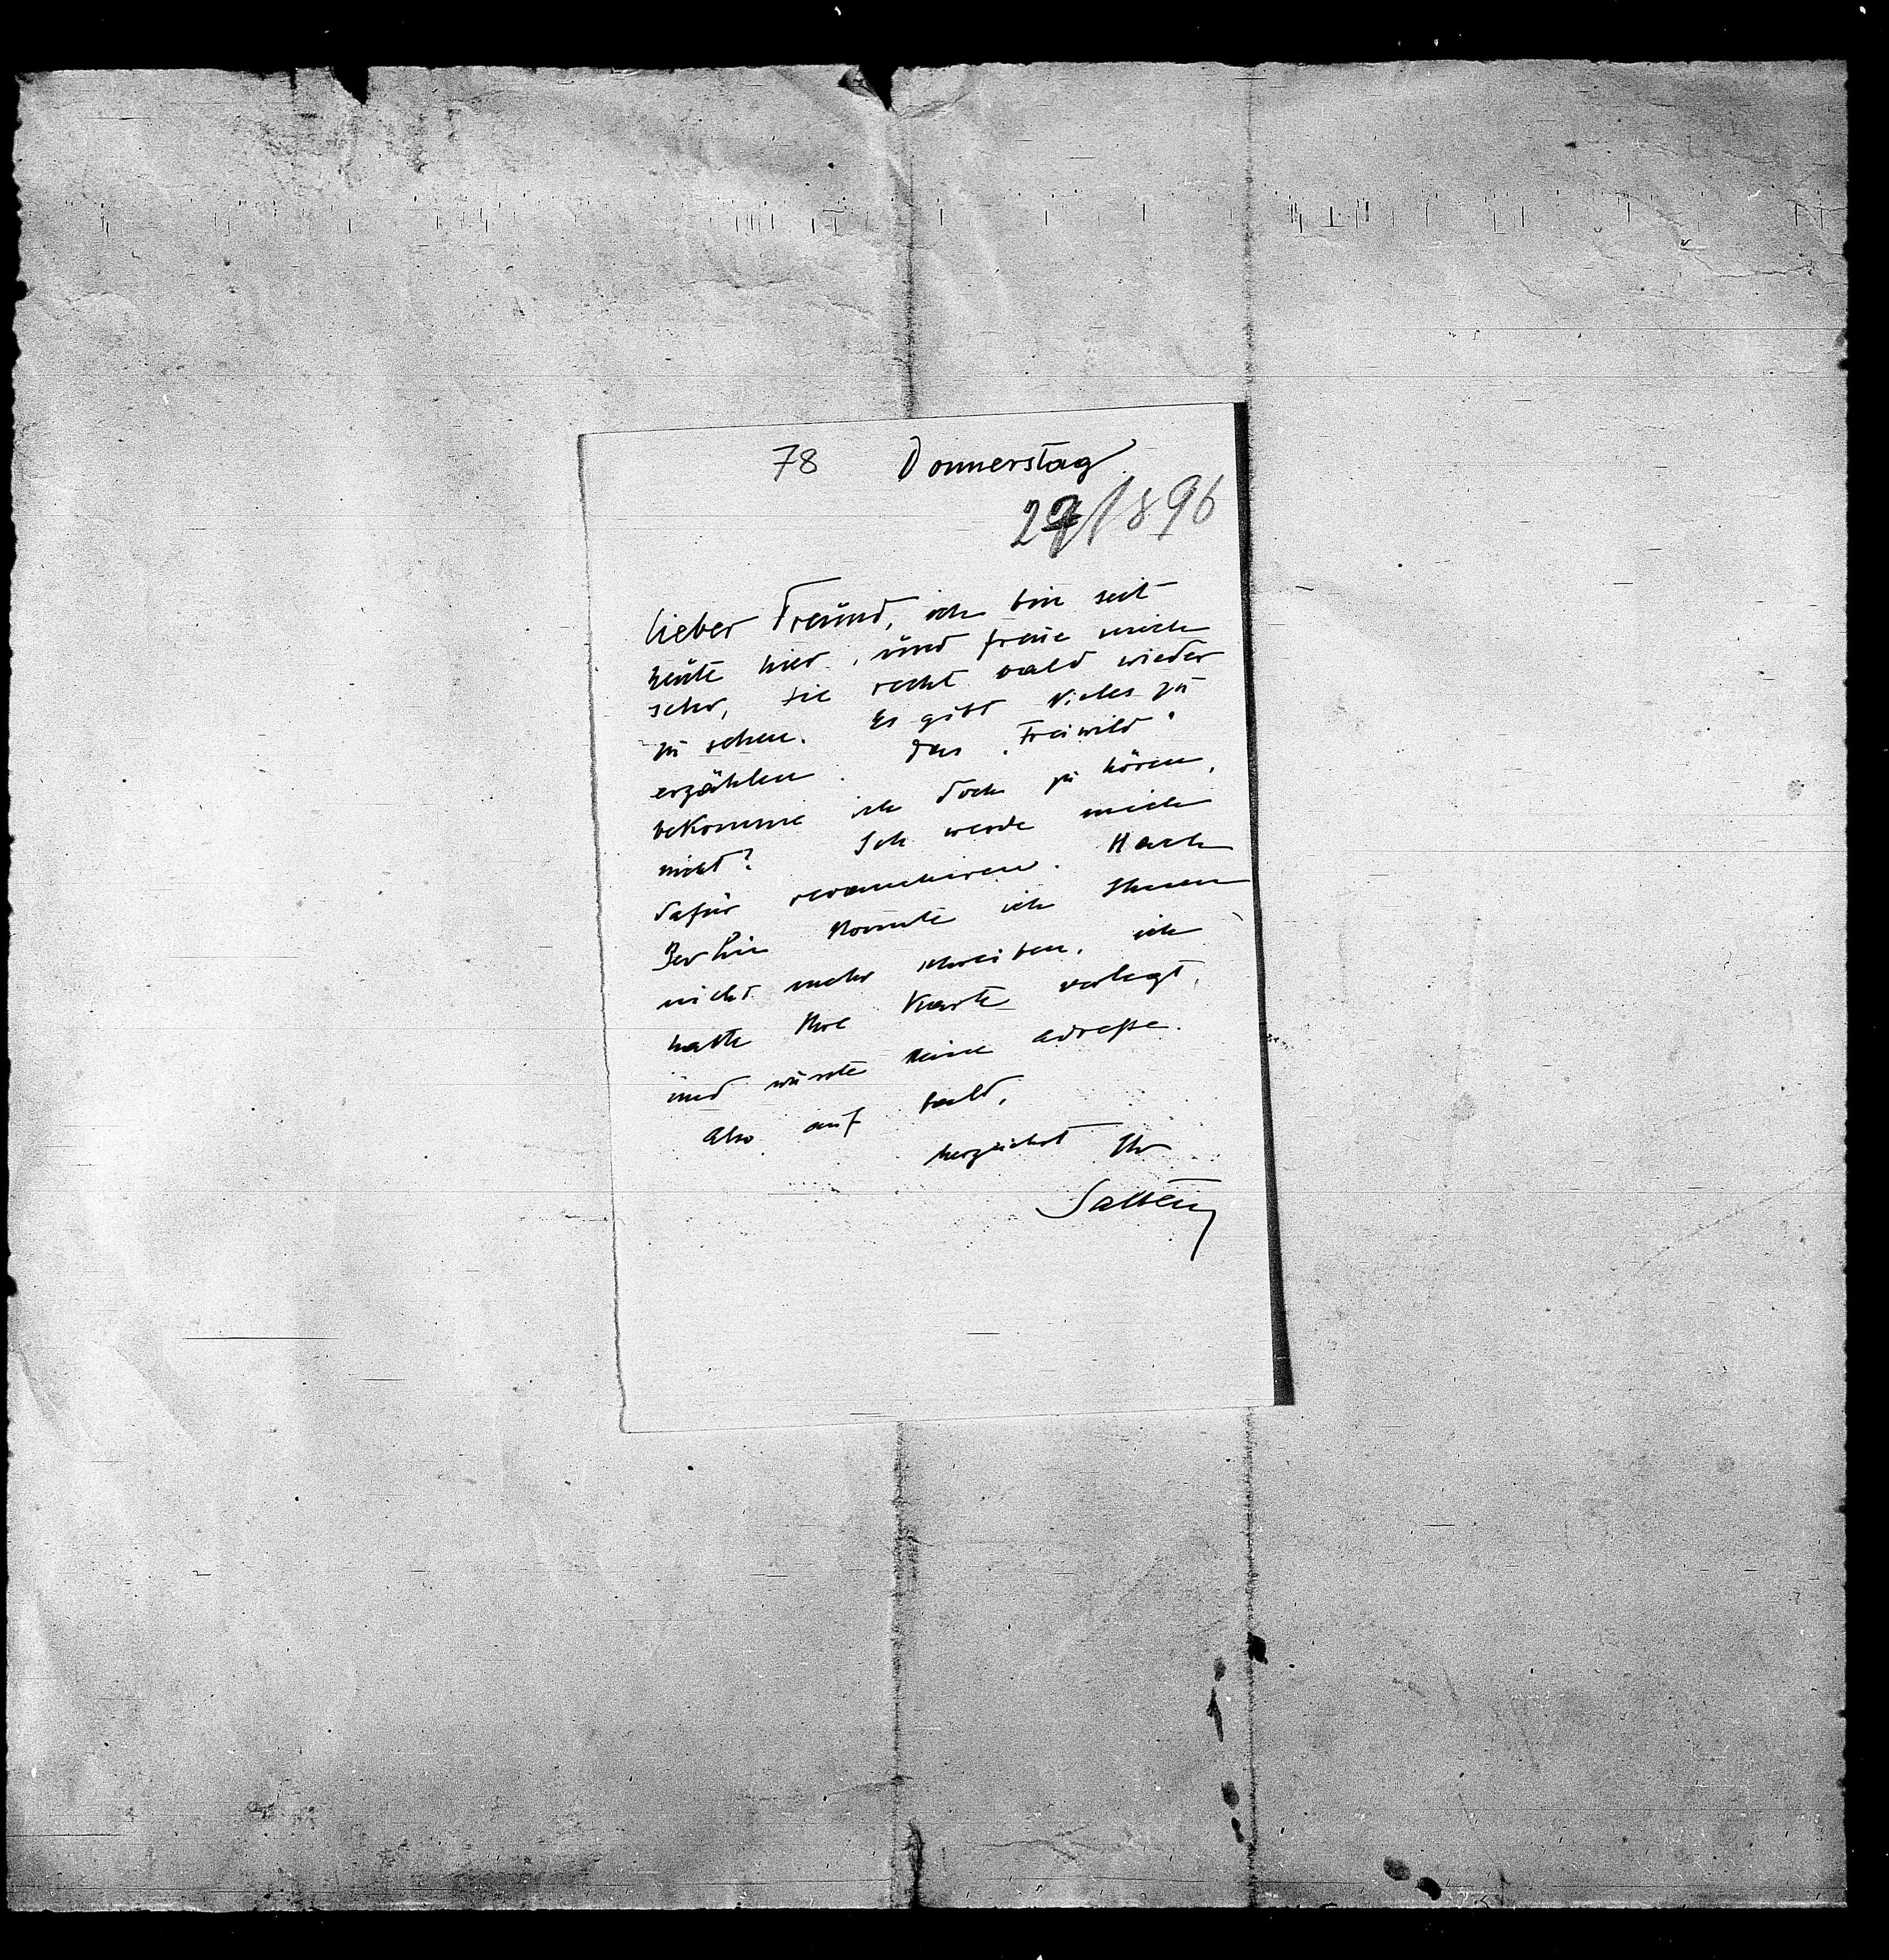 78 Donnerstag
27/896
lieber Freund, ich bin seit
heute hier, und freue mich
sehr, Sie recht bald wieder
zu sehen. Es gibt vieles zu
erzählen. Das „Freiwild“
bekomme ich doch zu hören,
nicht? Ich werde mich
dafür revanchiren. Nach
Berlin konnte ich Ihnen
nicht mehr schreiben, ich
hatte Ihre Karte verlegt,
und wusste keine Adreße.
Also auf bald,
herzlichst Ihr
Salten